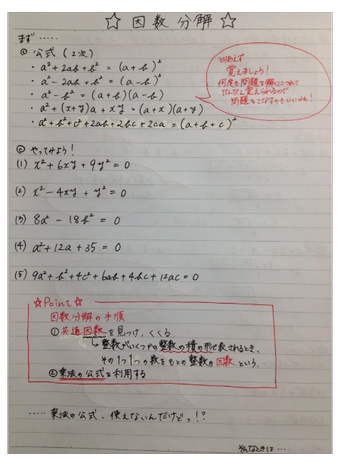 ☆ 因数分解 ☆
まず……
◎ 公式 (2次)
・a²+2ab+b² = (a+b)²
・a²-2ab+b² = (a-b)²
・a²-b² = (a+b)(a-b)
・a²+(x+y)a+xy = (a+x)(a+y)
・a²+b²+c²+2ab+2bc+2ca = (a+b+c)²
とりあえず
覚えましょう!
何度も問題を解くにつれて
だんだん覚えられるので
問題をこなすのもいいかも!
◎ やってみよう!
(1) x²+6xy+9y²=0
(2) x²-4xy+y²=0
(3) 8a²-18b²=0
(4) a²+12a+35=0
(5) 9a²+b²+4c²+6ab+4bc+12ac=0
☆Point☆
因数分解の手順
①共通因数を見つけ、くくる
整数がいくつかの整数の積の形で表されるとき、
その1つ1つの数をもとの整数の因数という。
②乗法の公式を利用する
……乗法の公式、使えないんだけどっ!?
そんなときは…